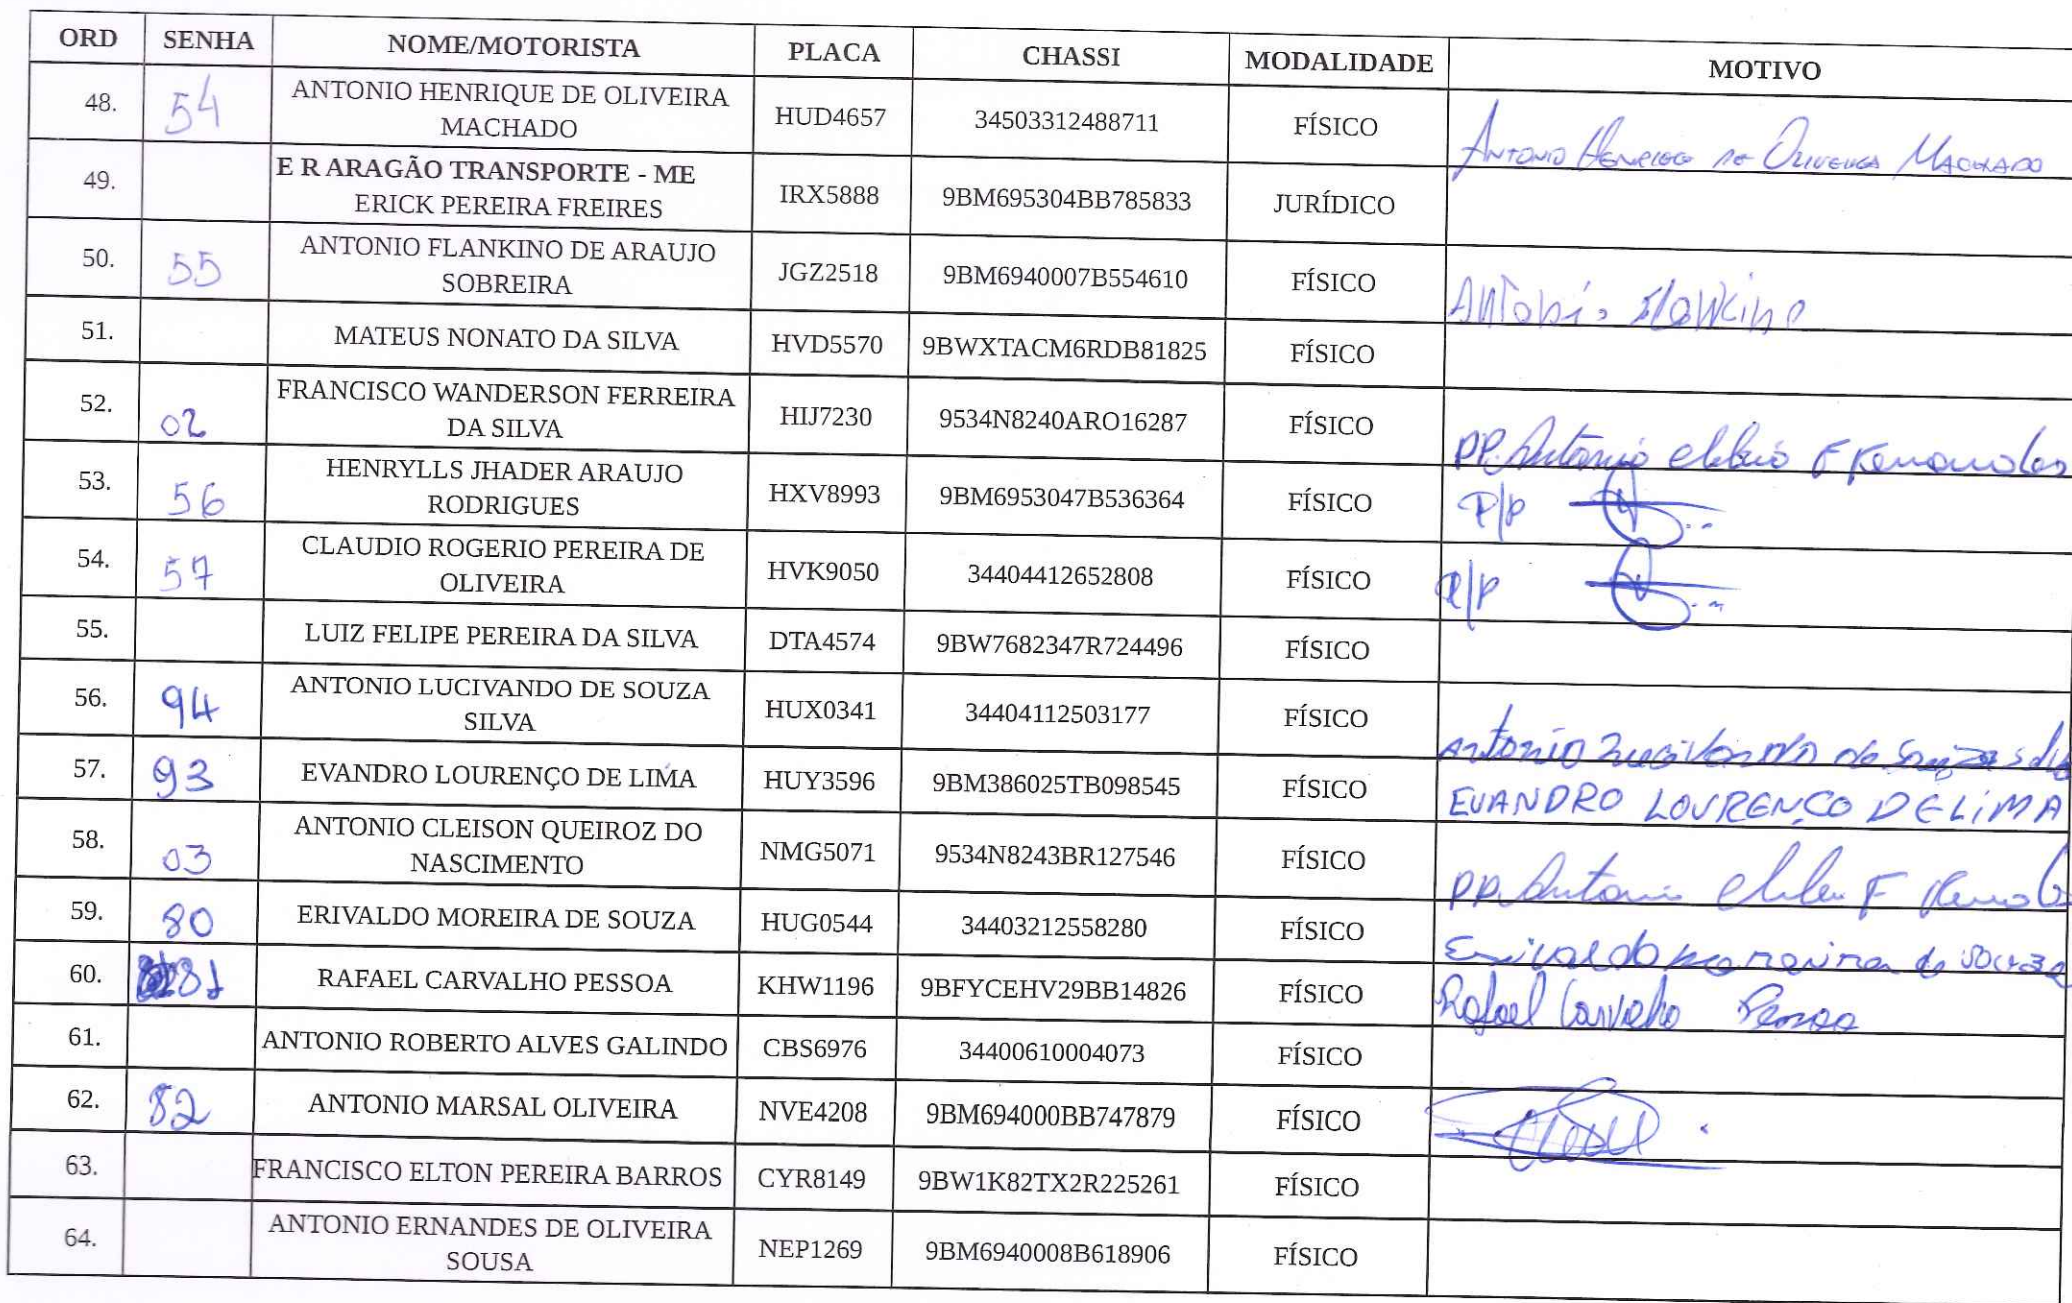 ORD SENHA NOME/MOTORISTA PLACA CHASSI MODALIDADE MOTIVO
48. 54 ANTONIO HENRIQUE DE OLIVEIRA MACHADO HUD4657 34503312488711 FÍSICO Antonio Henrique de Oliveira Machado
49. E R ARAGÃO TRANSPORTE - ME ERICK PEREIRA FREIRES IRX5888 9BM695304BB785833 JURÍDICO
50. 55 ANTONIO FLANKINO DE ARAUJO SOBREIRA JGZ2518 9BM6940007B554610 FÍSICO Antonio Flankino
51. MATEUS NONATO DA SILVA HVD5570 9BWXTACM6RDB81825 FÍSICO
52. 02 FRANCISCO WANDERSON FERREIRA DA SILVA HIJ7230 9534N8240ARO16287 FÍSICO PP. Antonio
53. 56 HENRYLLS JHADER ARAUJO RODRIGUES HXV8993 9BM6953047B536364 FÍSICO P/P
54. 57 CLAUDIO ROGERIO PEREIRA DE OLIVEIRA HVK9050 34404412652808 FÍSICO P/P
55. LUIZ FELIPE PEREIRA DA SILVA DTA4574 9BW7682347R724496 FÍSICO
56. 94 ANTONIO LUCIVANDO DE SOUZA SILVA HUX0341 34404112503177 FÍSICO Antonio Lucivando de Souza Silva
57. 93 EVANDRO LOURENÇO DE LIMA HUY3596 9BM386025TB098545 FÍSICO EVANDRO LOURENÇO DE LIMA
58. 03 ANTONIO CLEISON QUEIROZ DO NASCIMENTO NMG5071 9534N8243BR127546 FÍSICO PP. Antonio
59. 80 ERIVALDO MOREIRA DE SOUZA HUG0544 34403212558280 FÍSICO Erivaldo moreira de Souza
60. 81 RAFAEL CARVALHO PESSOA KHW1196 9BFYCEHV29BB14826 FÍSICO Rafael Carvalho Pessoa
61. ANTONIO ROBERTO ALVES GALINDO CBS6976 34400610004073 FÍSICO
62. 82 ANTONIO MARSAL OLIVEIRA NVE4208 9BM694000BB747879 FÍSICO
63. FRANCISCO ELTON PEREIRA BARROS CYR8149 9BW1K82TX2R225261 FÍSICO
64. ANTONIO ERNANDES DE OLIVEIRA SOUSA NEP1269 9BM6940008B618906 FÍSICO